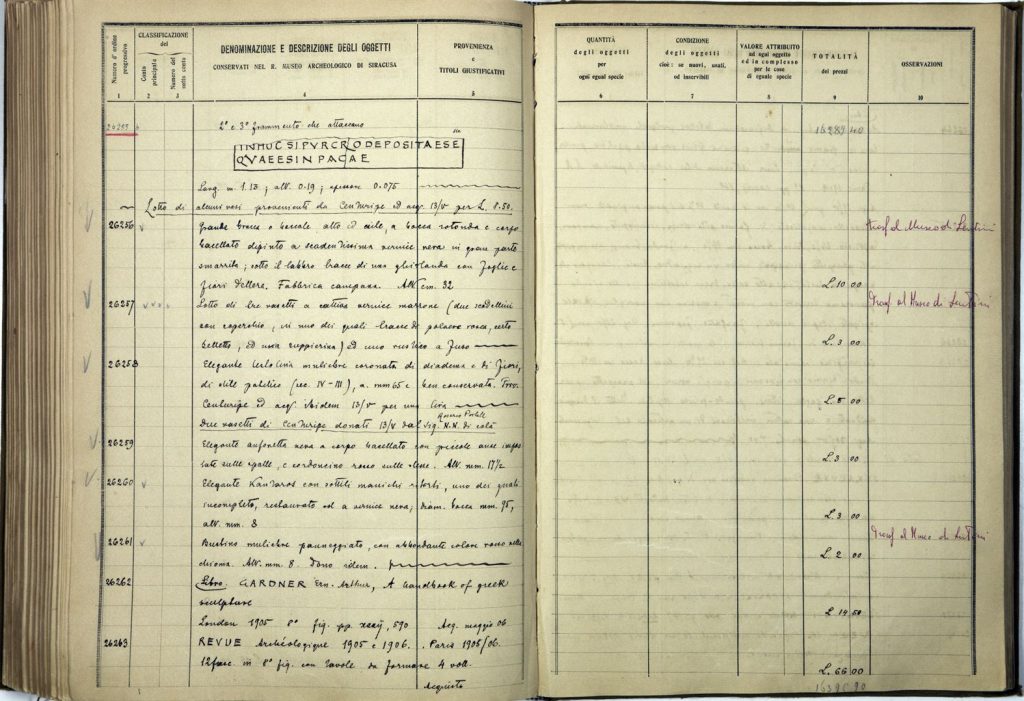 Numero d'ordine progressivo
CLASSIFICAZIONE
del
Conto principale
Numero del sotto conto
DENOMINAZIONE E DESCRIZIONE DEGLI OGGETTI
CONSERVATI NEL R. MUSEO ARCHEOLOGICO DI SIRACUSA
PROVENIENZA
e
TITOLI GIUSTIFICATIVI
1 2 3 4 5
26255
2° e 3° frammento che attaccano
sic
IN HUC SIPVRCRLO DEPOSITA ESE
QVAE ESIN PACAE
Lung. m. 1.13; alt. 0.19; spessore 0.075
Lotto di alcuni vasi provenienti da Centuripe ed acq. 13/V per L. 8.50.
26256
Grande brocca o boccale alto ed esile, a bocca rotonda e corpo
baccellato dipinto a scadentissima vernice nera in gran parte
smarrita; sotto il labbro tracce di una ghirlanda con foglie e
fiori d'ellera. Fabbrica campana. Alt. cm. 32
26257
Lotto di tre vasetti a cattiva vernice marrone (due scodellini
con coperchio, in uno dei quali tracce di polvere rossa, certo
belletto, ed una zuppierina) ed uno rustico a fuso
26258
Elegante testolina muliebre coronata di diadema e di fiori,
di stile (sec. IV-III), a. mm 65 e ben conservata. Prov.
Centuripe ed acq. ibidem 13/V per una lira
Due vasetti di Centuripe donati 13/V dal sig. N.N. di colà
26259
Elegante anforetta nera a corpo baccellato con piccole anse impostate
sulle spalle, e cordoncino rosso sulle stesse. Alt. mm. 17½
26260
Elegante Kantaros con sottili manichi ritorti, uno dei quali
incompleto, restaurato ed a vernice nera; diam. bocca mm. 95,
alt. mm. 8
26261
Bustino muliebre panneggiato, con abbondante colore rosso nella
chioma. Alt. mm 8. Dono idem.
26262
Libro: GARDNER Ern. Arthur, A handbook of greek
sculpture
London 1905 8° fig. pp. xxxij, 590 Acq. maggio 06
26263
REVUE Archéologique 1905 e 1906. Paris 1905/06.
12 fasc. in 8° fig. con tavole da formare 4 voll.
Acquisto
QUANTITÀ
degli oggetti
per
ogni egual specie
CONDIZIONE
degli oggetti
cioè: se nuovi, usati,
od inservibili
VALORE ATTRIBUITO
ad ogni oggetto
ed in complesso
per le cose
di eguale specie
TOTALITÀ
dei prezzi
OSSERVAZIONI
6 7 8 9 10
16289 40
Trasf. al Museo di Lentini
L. 10 00
Trasf. al Museo di Lentini
L. 3 00
L. 5 00
L. 3 00
L. 3 00
Trasf. al Museo di Lentini
L. 2 00
L. 14 50
L. 66 00